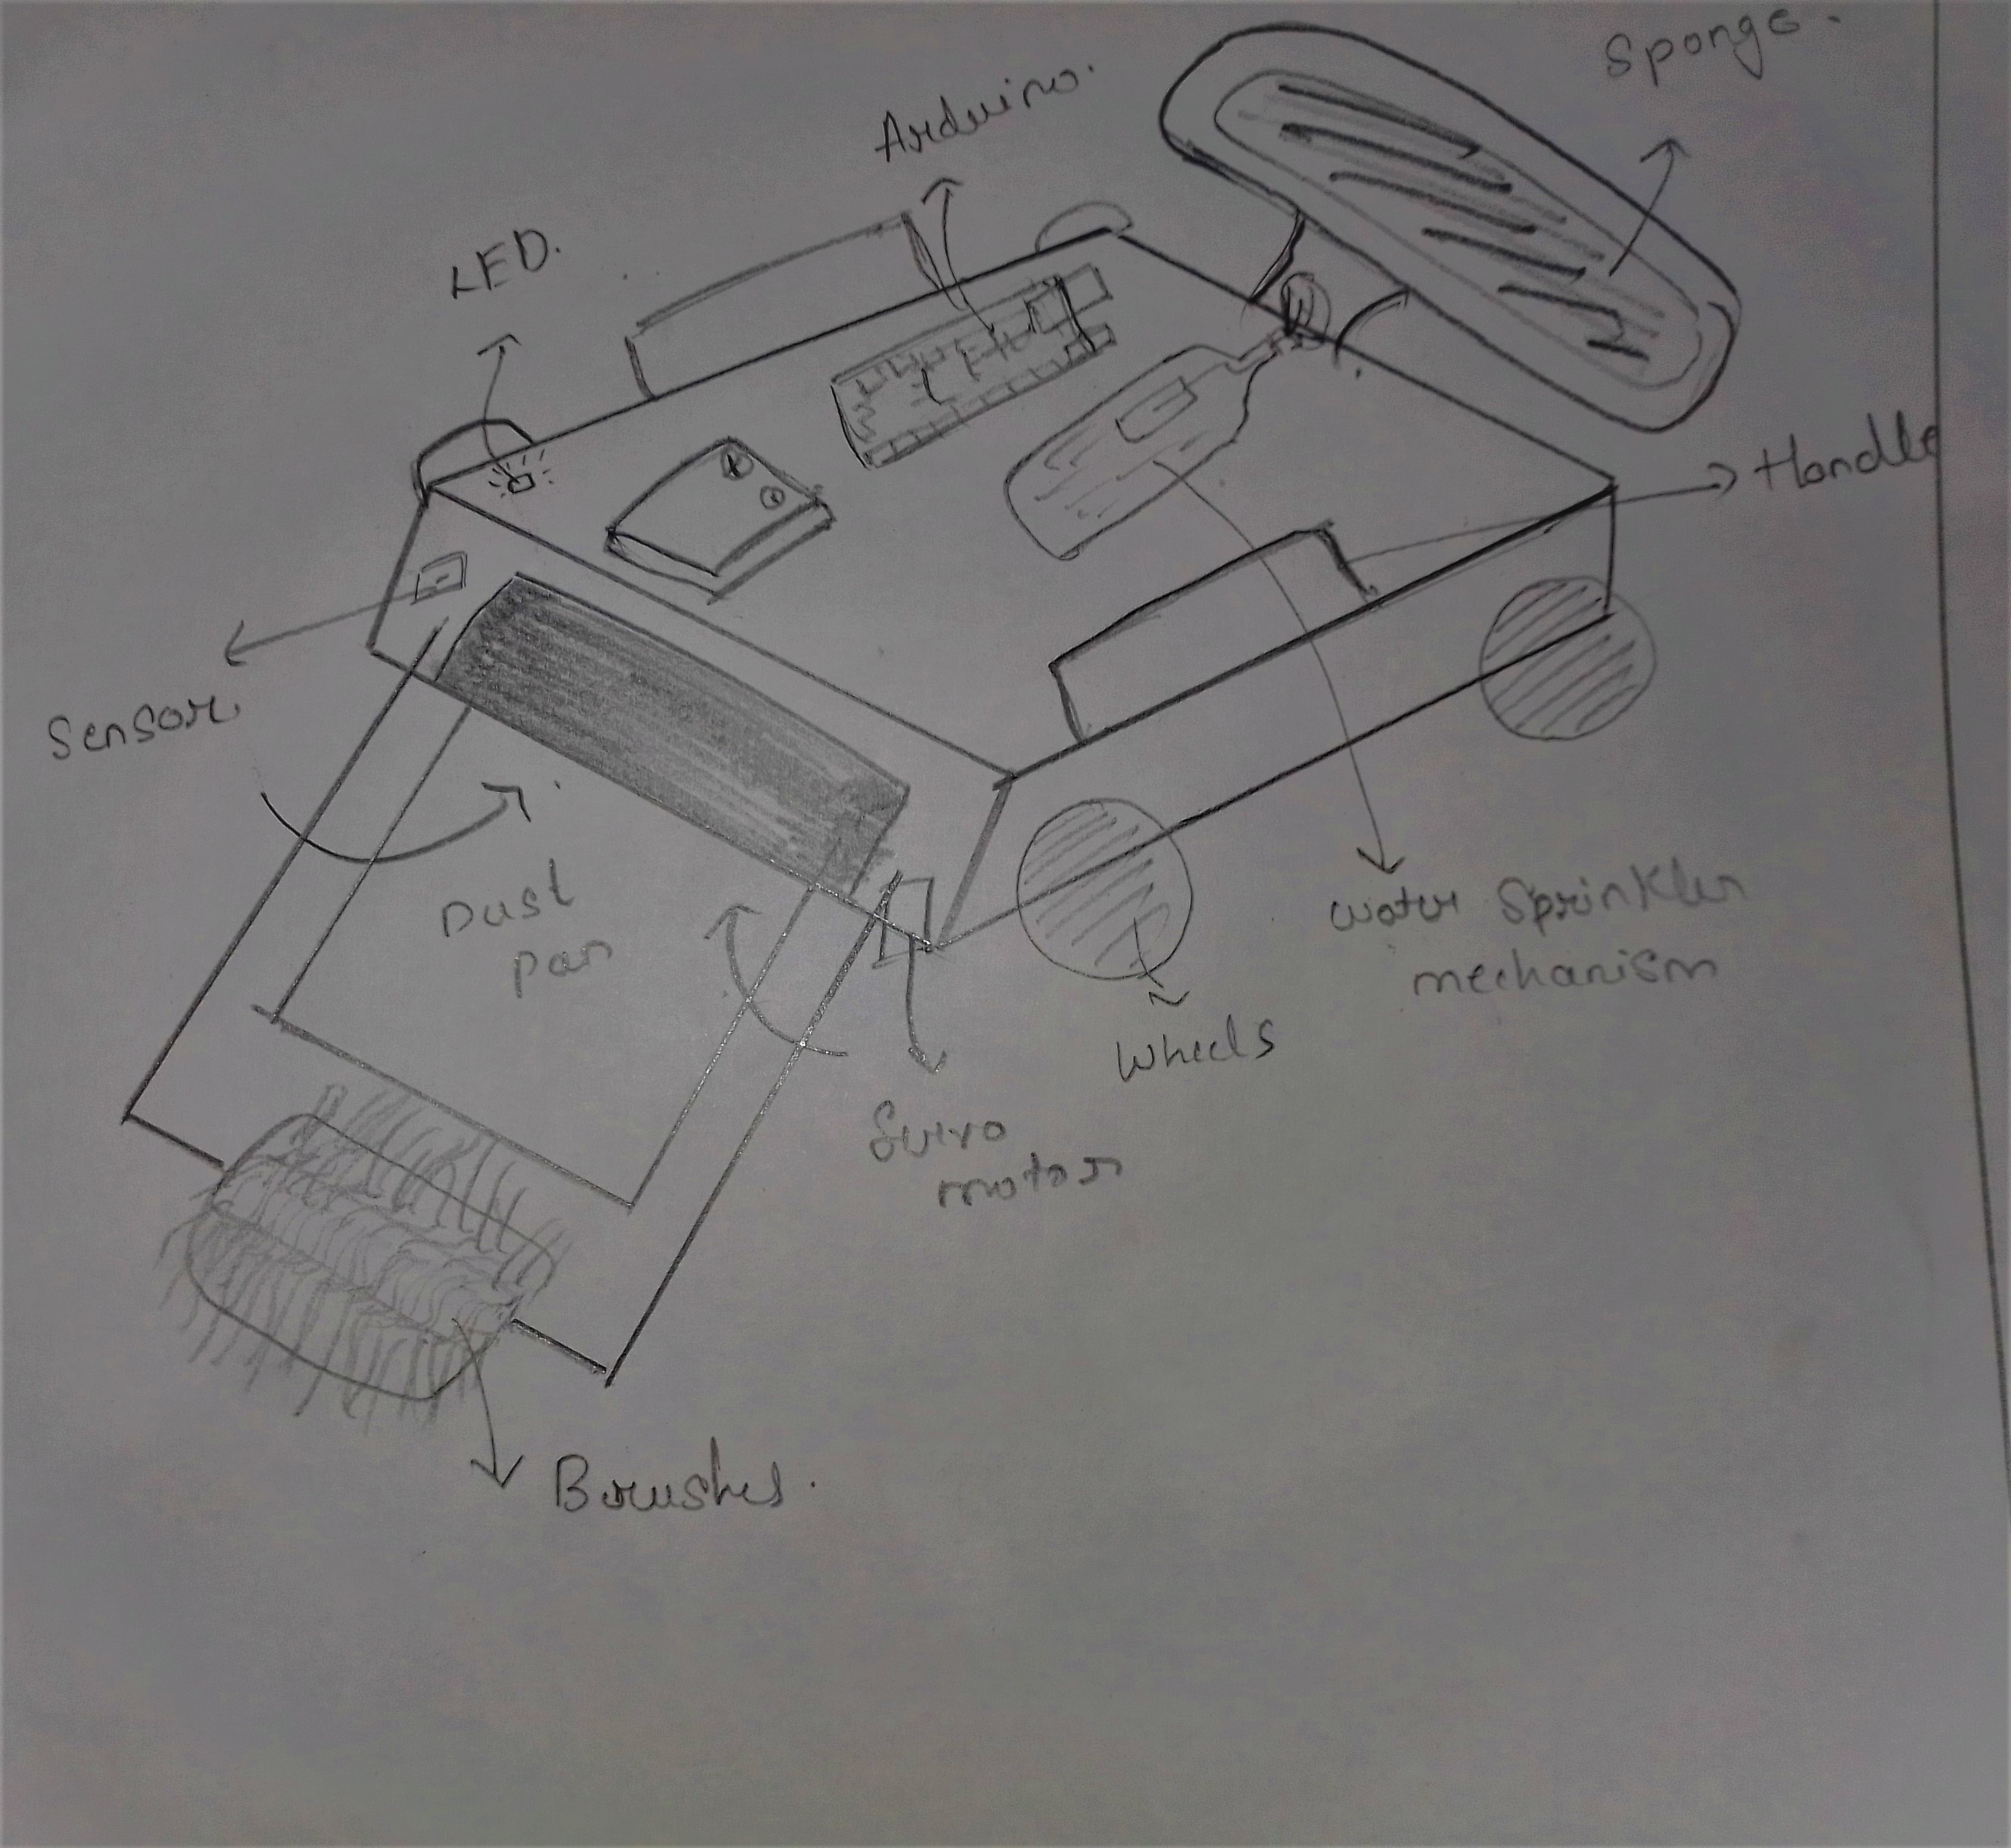 Sponge.
Arduino.
LED.
Handle
Sensor
Dust
pan
water Sprinkler
mechanism
Wheels
Servo
motor
Brushes.